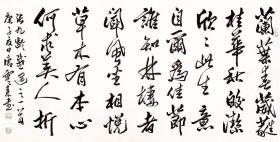 蘭葉春葳蕤
桂華秋皎潔
欣欣此生意
自爾為佳節
誰知林棲者
聞風坐相悅
草木有本心
何求美人折
張九齡感遇之一首
庚子夏日